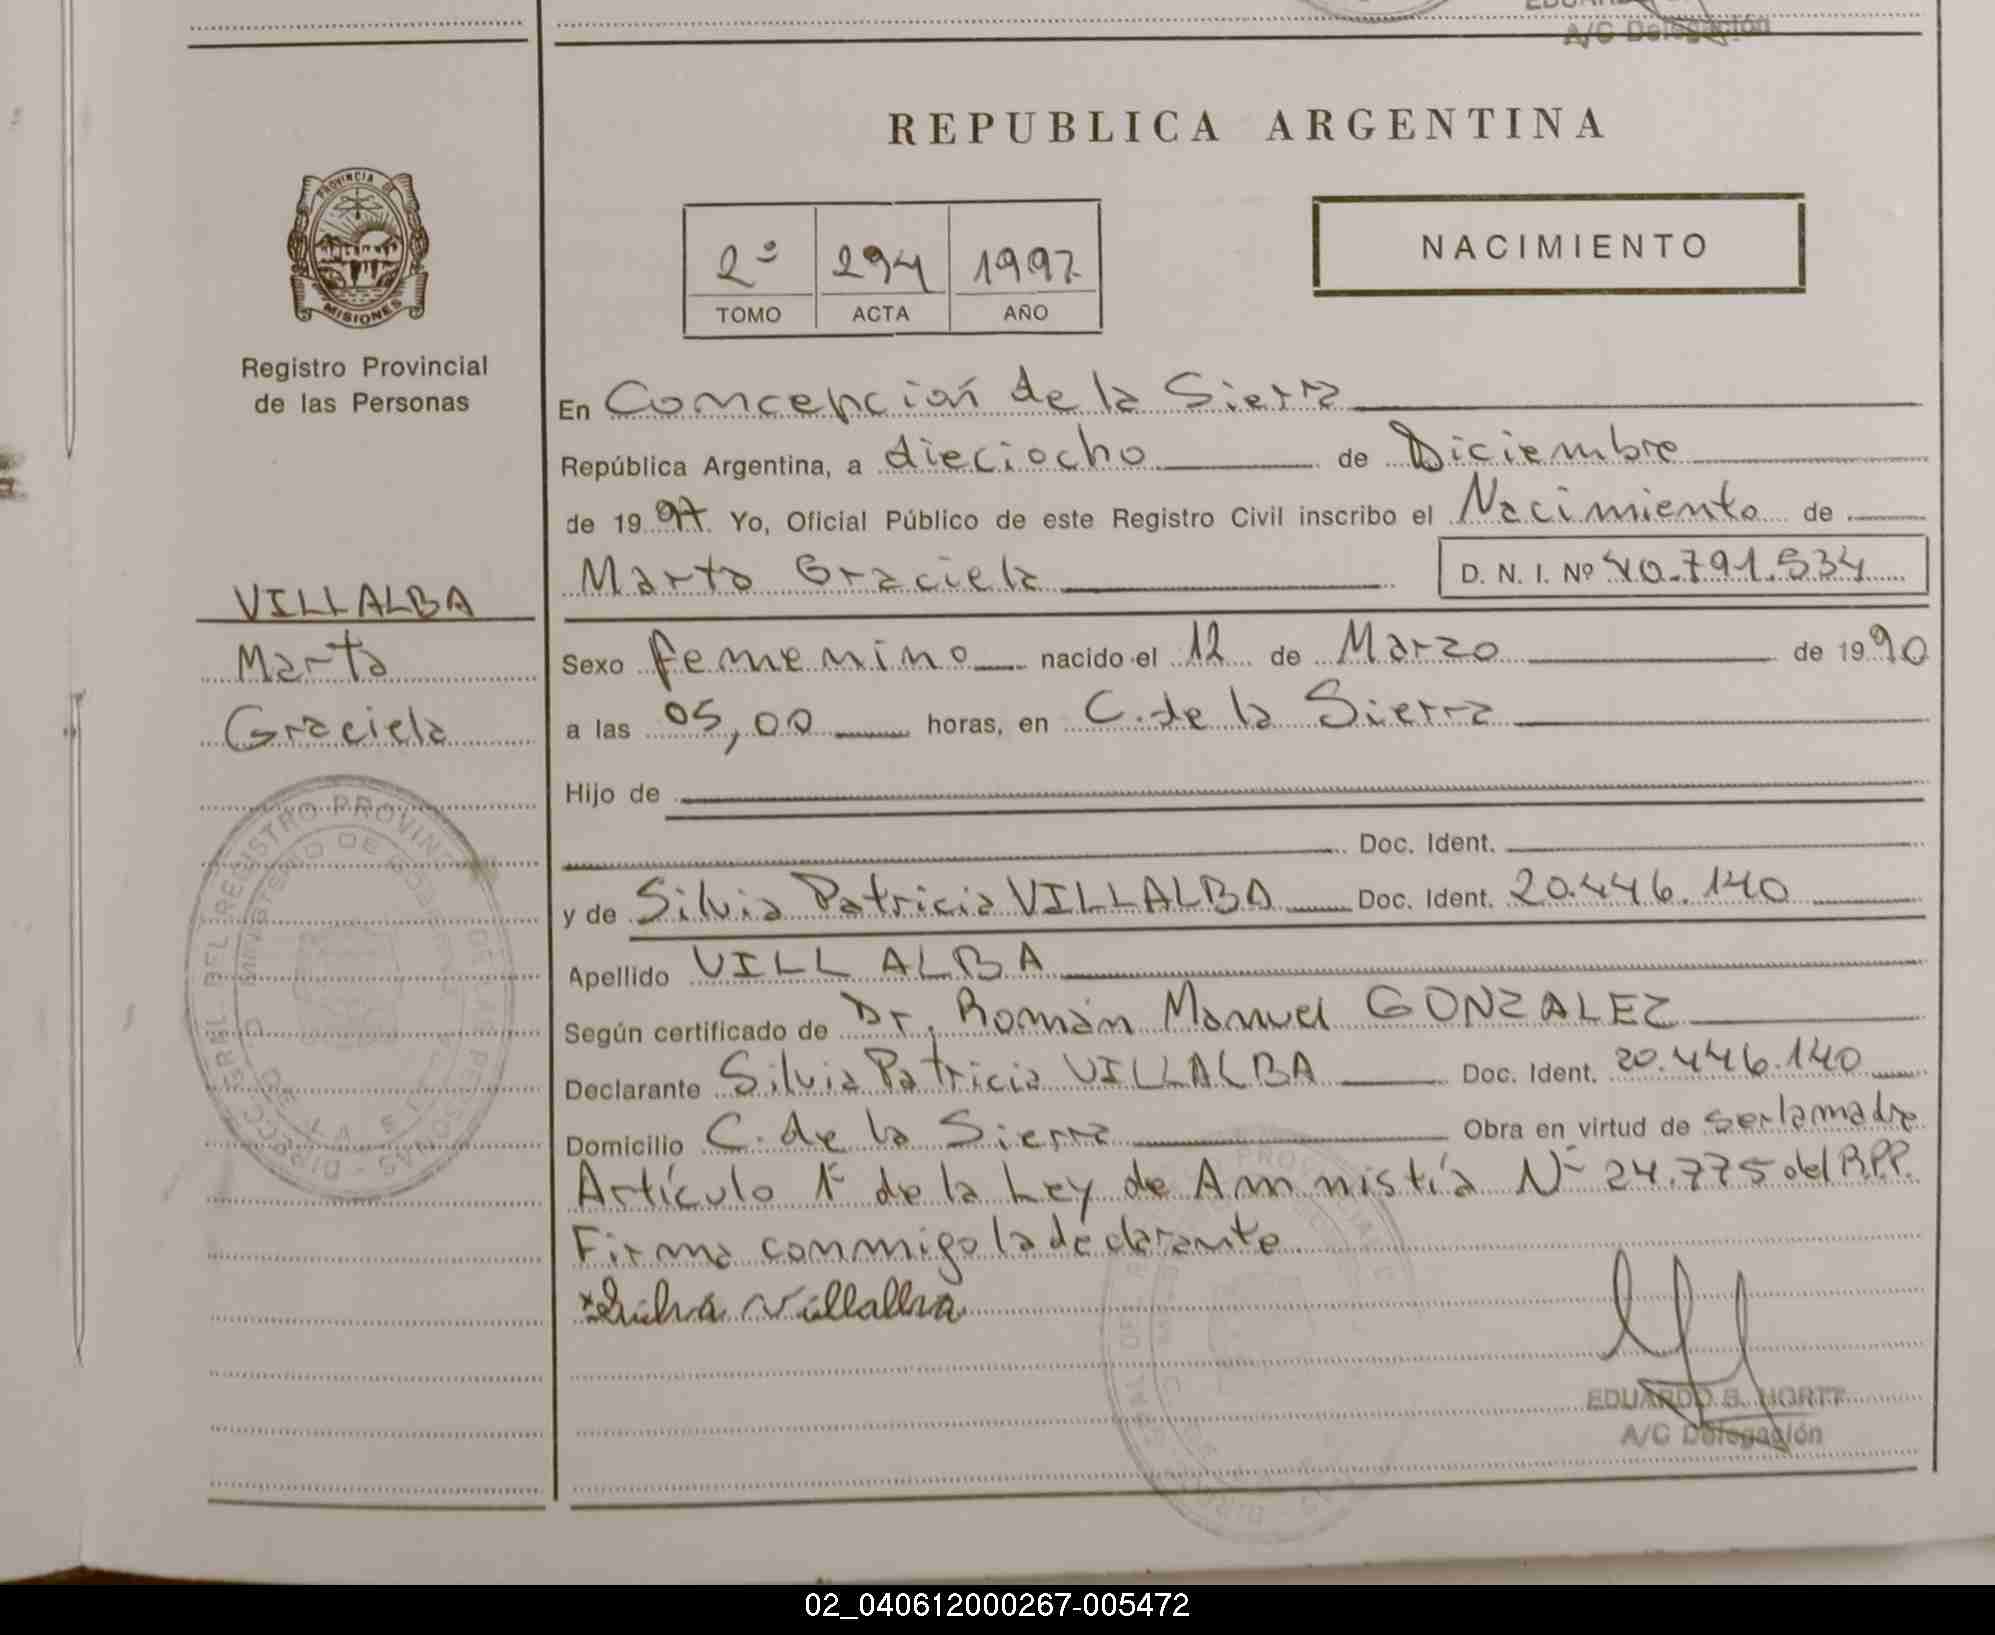 A/C Delegación
REPUBLICA ARGENTINA
PROVINCIA DE
MISIONES
Registro Provincial
de las Personas
2º 294 1997
TOMO ACTA AÑO
NACIMIENTO
En Concepción de la Sierra
República Argentina, a dieciocho de Diciembre
de 1997 Yo, Oficial Público de este Registro Civil inscribo el Nacimiento de
Marta Graciela D. N. I. Nº 40.791.534
VILLALBA
Marta
Graciela
Sexo femenino nacido el 12 de Marzo de 1990
a las 05,00 horas, en C. de la Sierra
Hijo de
Doc. Ident.
y de Silvia Patricia VILLALBA Doc. Ident. 20.446.140
Apellido VILLALBA
Según certificado de Dr. Román Manuel GONZALEZ
Declarante Silvia Patricia VILLALBA Doc. Ident. 20.446.140
Domicilio C. de la Sierra Obra en virtud de ser la madre
Artículo 1º de la Ley de Amnistía Nº 24.775 del R.P.P.
Firma conmigo la declarante
Silvia Villalba
EDUARDO B. HORTT
A/C Delegación
02_040612000267-005472